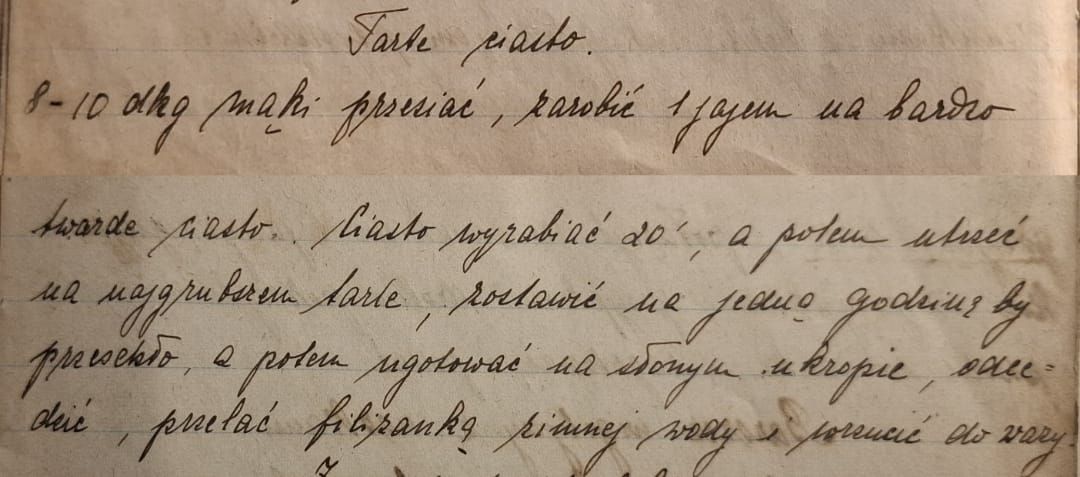 Tarte ciasto.
8-10 dkg mąki przesiać, zarobić 1 jajem na bardzo
twarde ciasto. Ciasto wyrabiać 20', a potem utrzeć
na najgrubszem tarle, zostawić na jedną godzinę by
przeschło, a potem ugotować na słonym ukropie, odce=
dzić, przelać filiżanką zimnej wody i wrzucić do wazy.